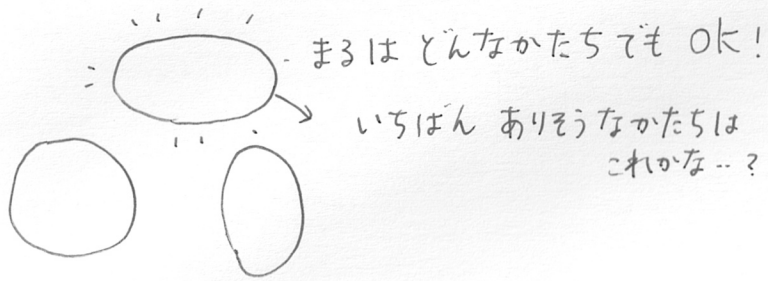 まるは どんなかたちでも OK!
いちばん ありそうなかたちは
これかな‥?